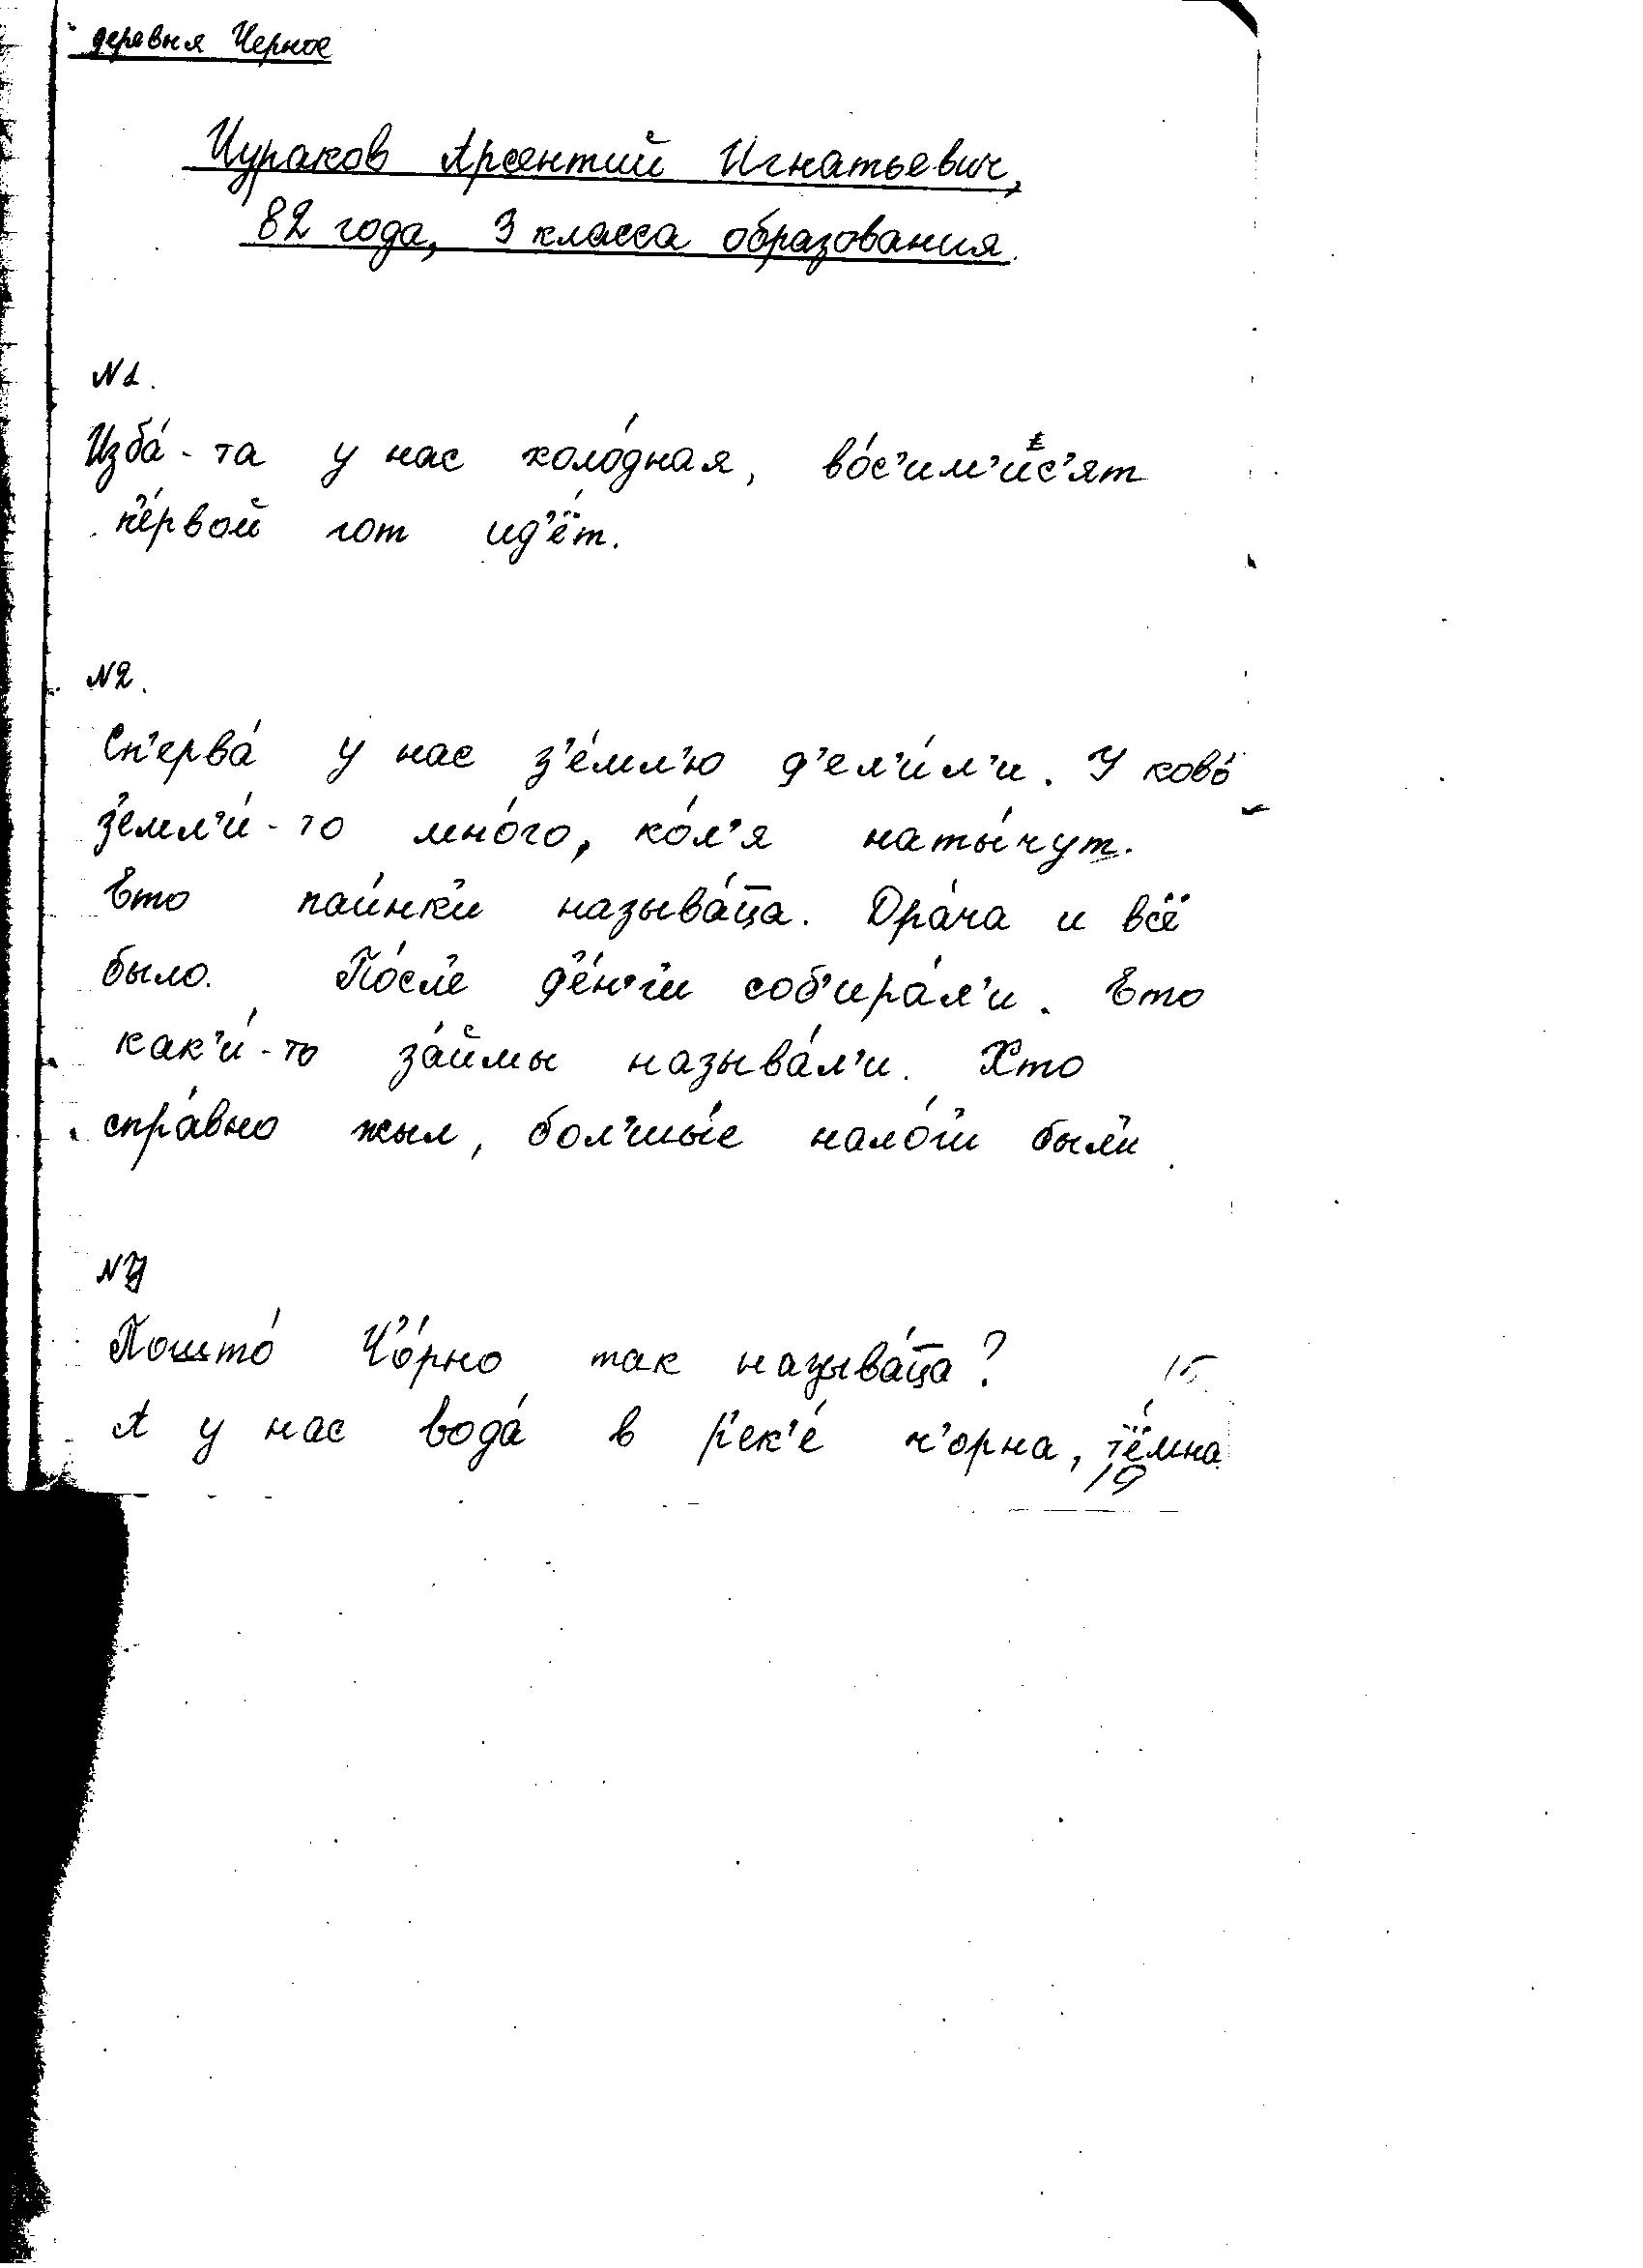 деревня Черное
Чураков Арсентий Игнатьевич,
82 года, 3 класса образования.
N1.
Изба́-та у нас холо́дная, во́с'им'ис'ят
п'е́рвой гот ид'ёт.
N2.
Сп'ерва́ у нас з'е́мл'ю д'ел'и́л'и. У ково́
з'емл'и́-то мно́го, ко́л'я наты́чут.
Ето паи́нк'и называ́ца. Дра́ча и вс'ё
было. По́сл'е д'е́н'г'и соб'ира́л'и. Ето
как'и́-то за́ймы называ́л'и. Хто
спра́вно жыл, бол'шы́е нало́г'и был'и.
N3
Пошто́ Ч'о́рно так называ́ца?
А у нас вода́ в р'ек'е́ ч'орна, т'ёмна
15
19